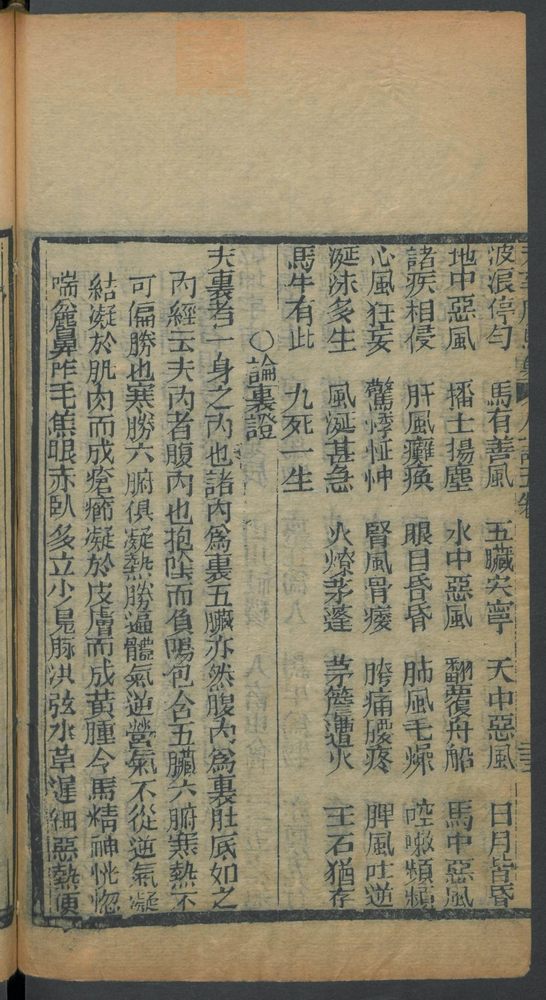 波浪停勻 馬有善風 五臟安寧 天中惡風 日月皆昏
地中惡風 播土揚塵 水中惡風 翻覆舟船 馬中惡風
諸疾相侵 肝風癱瘓 眼目昏昏 肺風毛燥 咳嗽頻頻
心風狂妄 驚悸怔忡 腎風骨痿 胯痛腰疼 脾風吐逆
涎沫多生 風涎甚急 火燎茅蓬 茅簷遭火 玉石猶存
馬牛有此 九死一生
○論裏證
夫裏者一身之內也諸內為裏五臟亦然腹內為裏肚底如之
內經云夫內者腹內也抱陰而負陽包含五臟六腑寒熱不
可偏勝也寒勝六腑俱凝熱勝逼體氣逆營氣不從逆氣凝
結凝於肌肉而成瘡癤凝於皮膚而成黃腫令馬精神恍惚
喘麄鼻咋毛焦眼赤臥多立少見脉洪弦水草遲細惡熱便